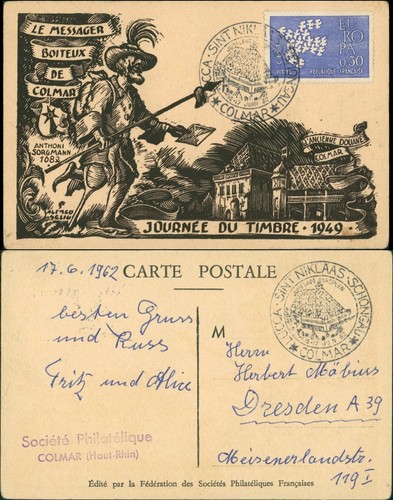 LE MESSAGER
BOITEUX
DE
COLMAR
ANTHONI
SORGMANN
1082
LUCCA · SINT NIKLAAS · SCHONGAU
COLMAR
EUROPA
0,30
POSTES RÉPUBLIQUE FRANÇAISE
L'ANCIENNE DOUANE
COLMAR
JOURNÉE DU TIMBRE · 1949 ·
17.6.1962 CARTE POSTALE
LUCCA · SINT NIKLAAS · SCHONGAU
★ COLMAR ★
besten Gruss
und Kuss
Fritz und Alice
M
Herrn
Herbert Mäbius
Dresden A 39
Meisenerlandstr.
119 I
Société Philatélique
COLMAR (Haut-Rhin)
Édité par la Fédération des Sociétés Philatéliques Françaises